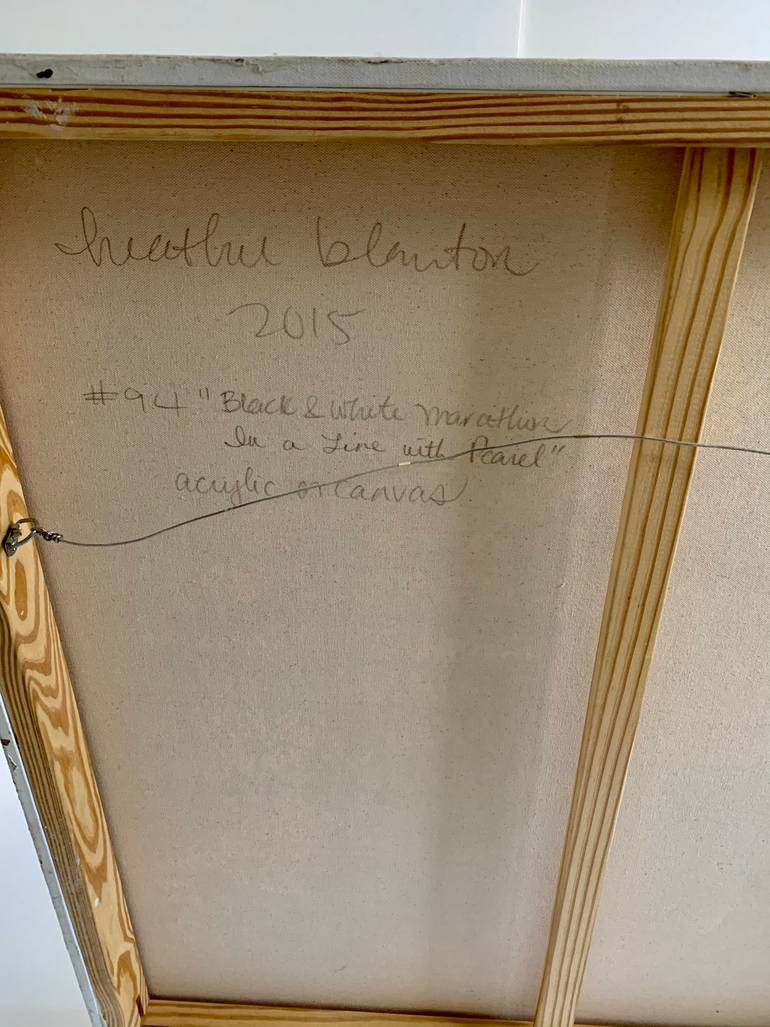 heather blanton
2015
#94 "Black & White Marathon
In a Line with Pearl"
acrylic on canvas